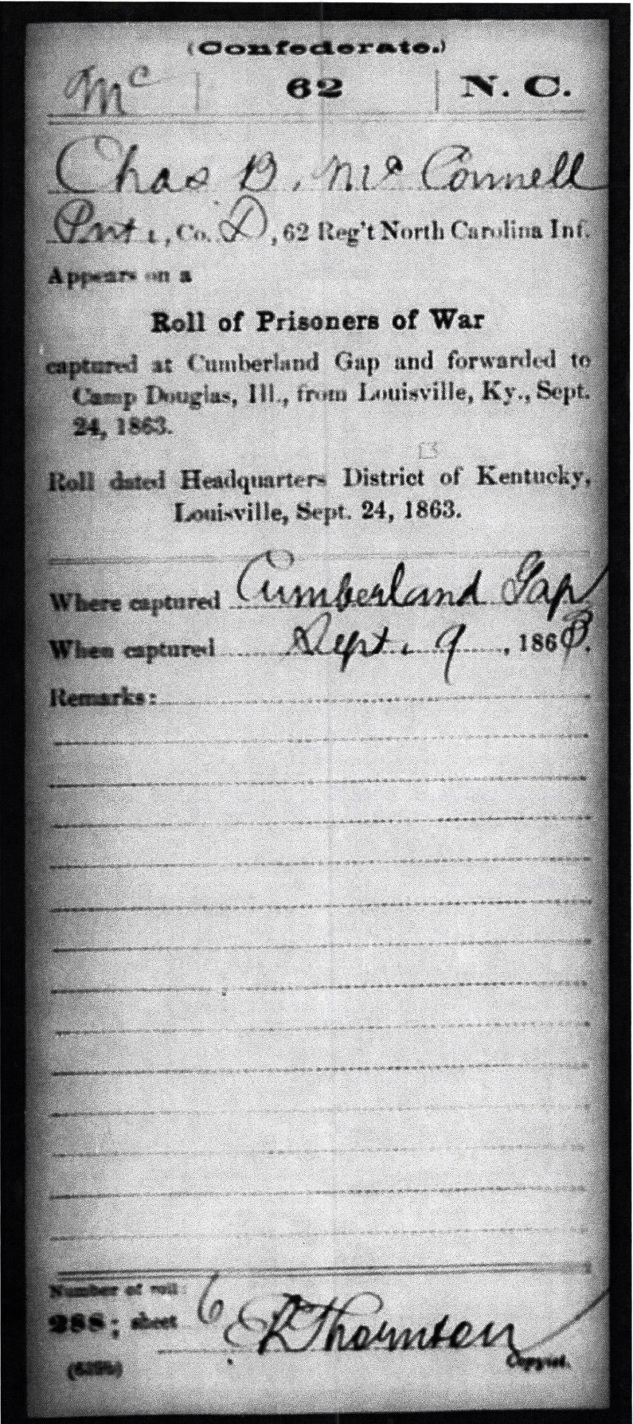 (Confederate.)
Mc | 62 | N. C.
Chas B. Mc Connell
Pvt., Co. D, 62 Reg't North Carolina Inf.
Appears on a
Roll of Prisoners of War
captured at Cumberland Gap and forwarded to
Camp Douglas, Ill., from Louisville, Ky., Sept.
24, 1863.
Roll dated Headquarters District of Kentucky,
Louisville, Sept. 24, 1863.
Where captured Cumberland Gap
When captured Sept. 9, 1863.
Remarks:
Number of roll:
288; sheet 6 Thornton
Copyist.